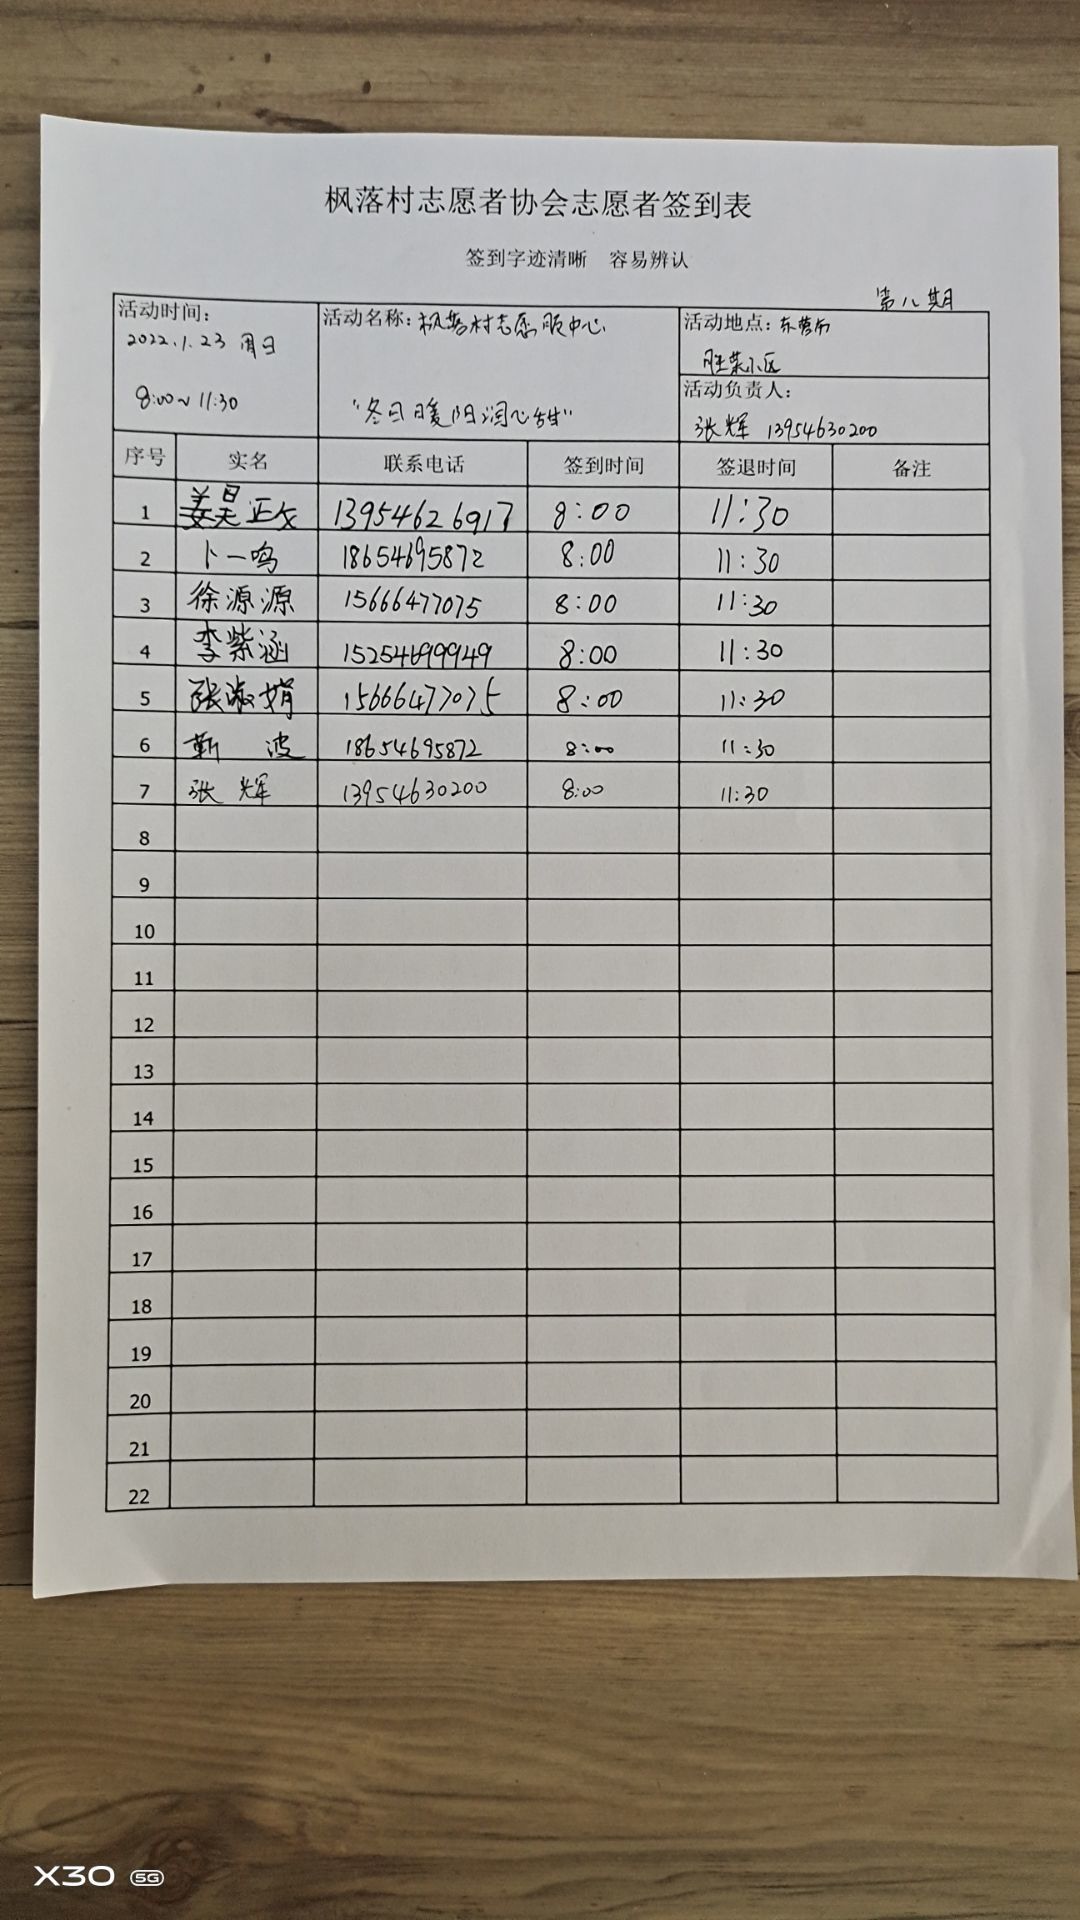 枫落村志愿者协会志愿者签到表
签到字迹清晰 容易辨认
第八期
活动时间：
2022.1.23 周日
8:00~11:30
活动名称：枫落村志愿服中心
“冬日暖阳润心甜”
活动地点：东营市
胜荣小区
活动负责人：
张辉 13954630200
序号 实名 联系电话 签到时间 签退时间 备注
1 姜昊正 13954626917 8:00 11:30
2 卜一鸣 18654695872 8:00 11:30
3 徐源源 15666477075 8:00 11:30
4 李紫涵 15254699949 8:00 11:30
5 张淑娟 15666477075 8:00 11:30
6 靳波 18654695872 8:00 11:30
7 张辉 13954630200 8:00 11:30
8
9
10
11
12
13
14
15
16
17
18
19
20
21
22
X30 5G